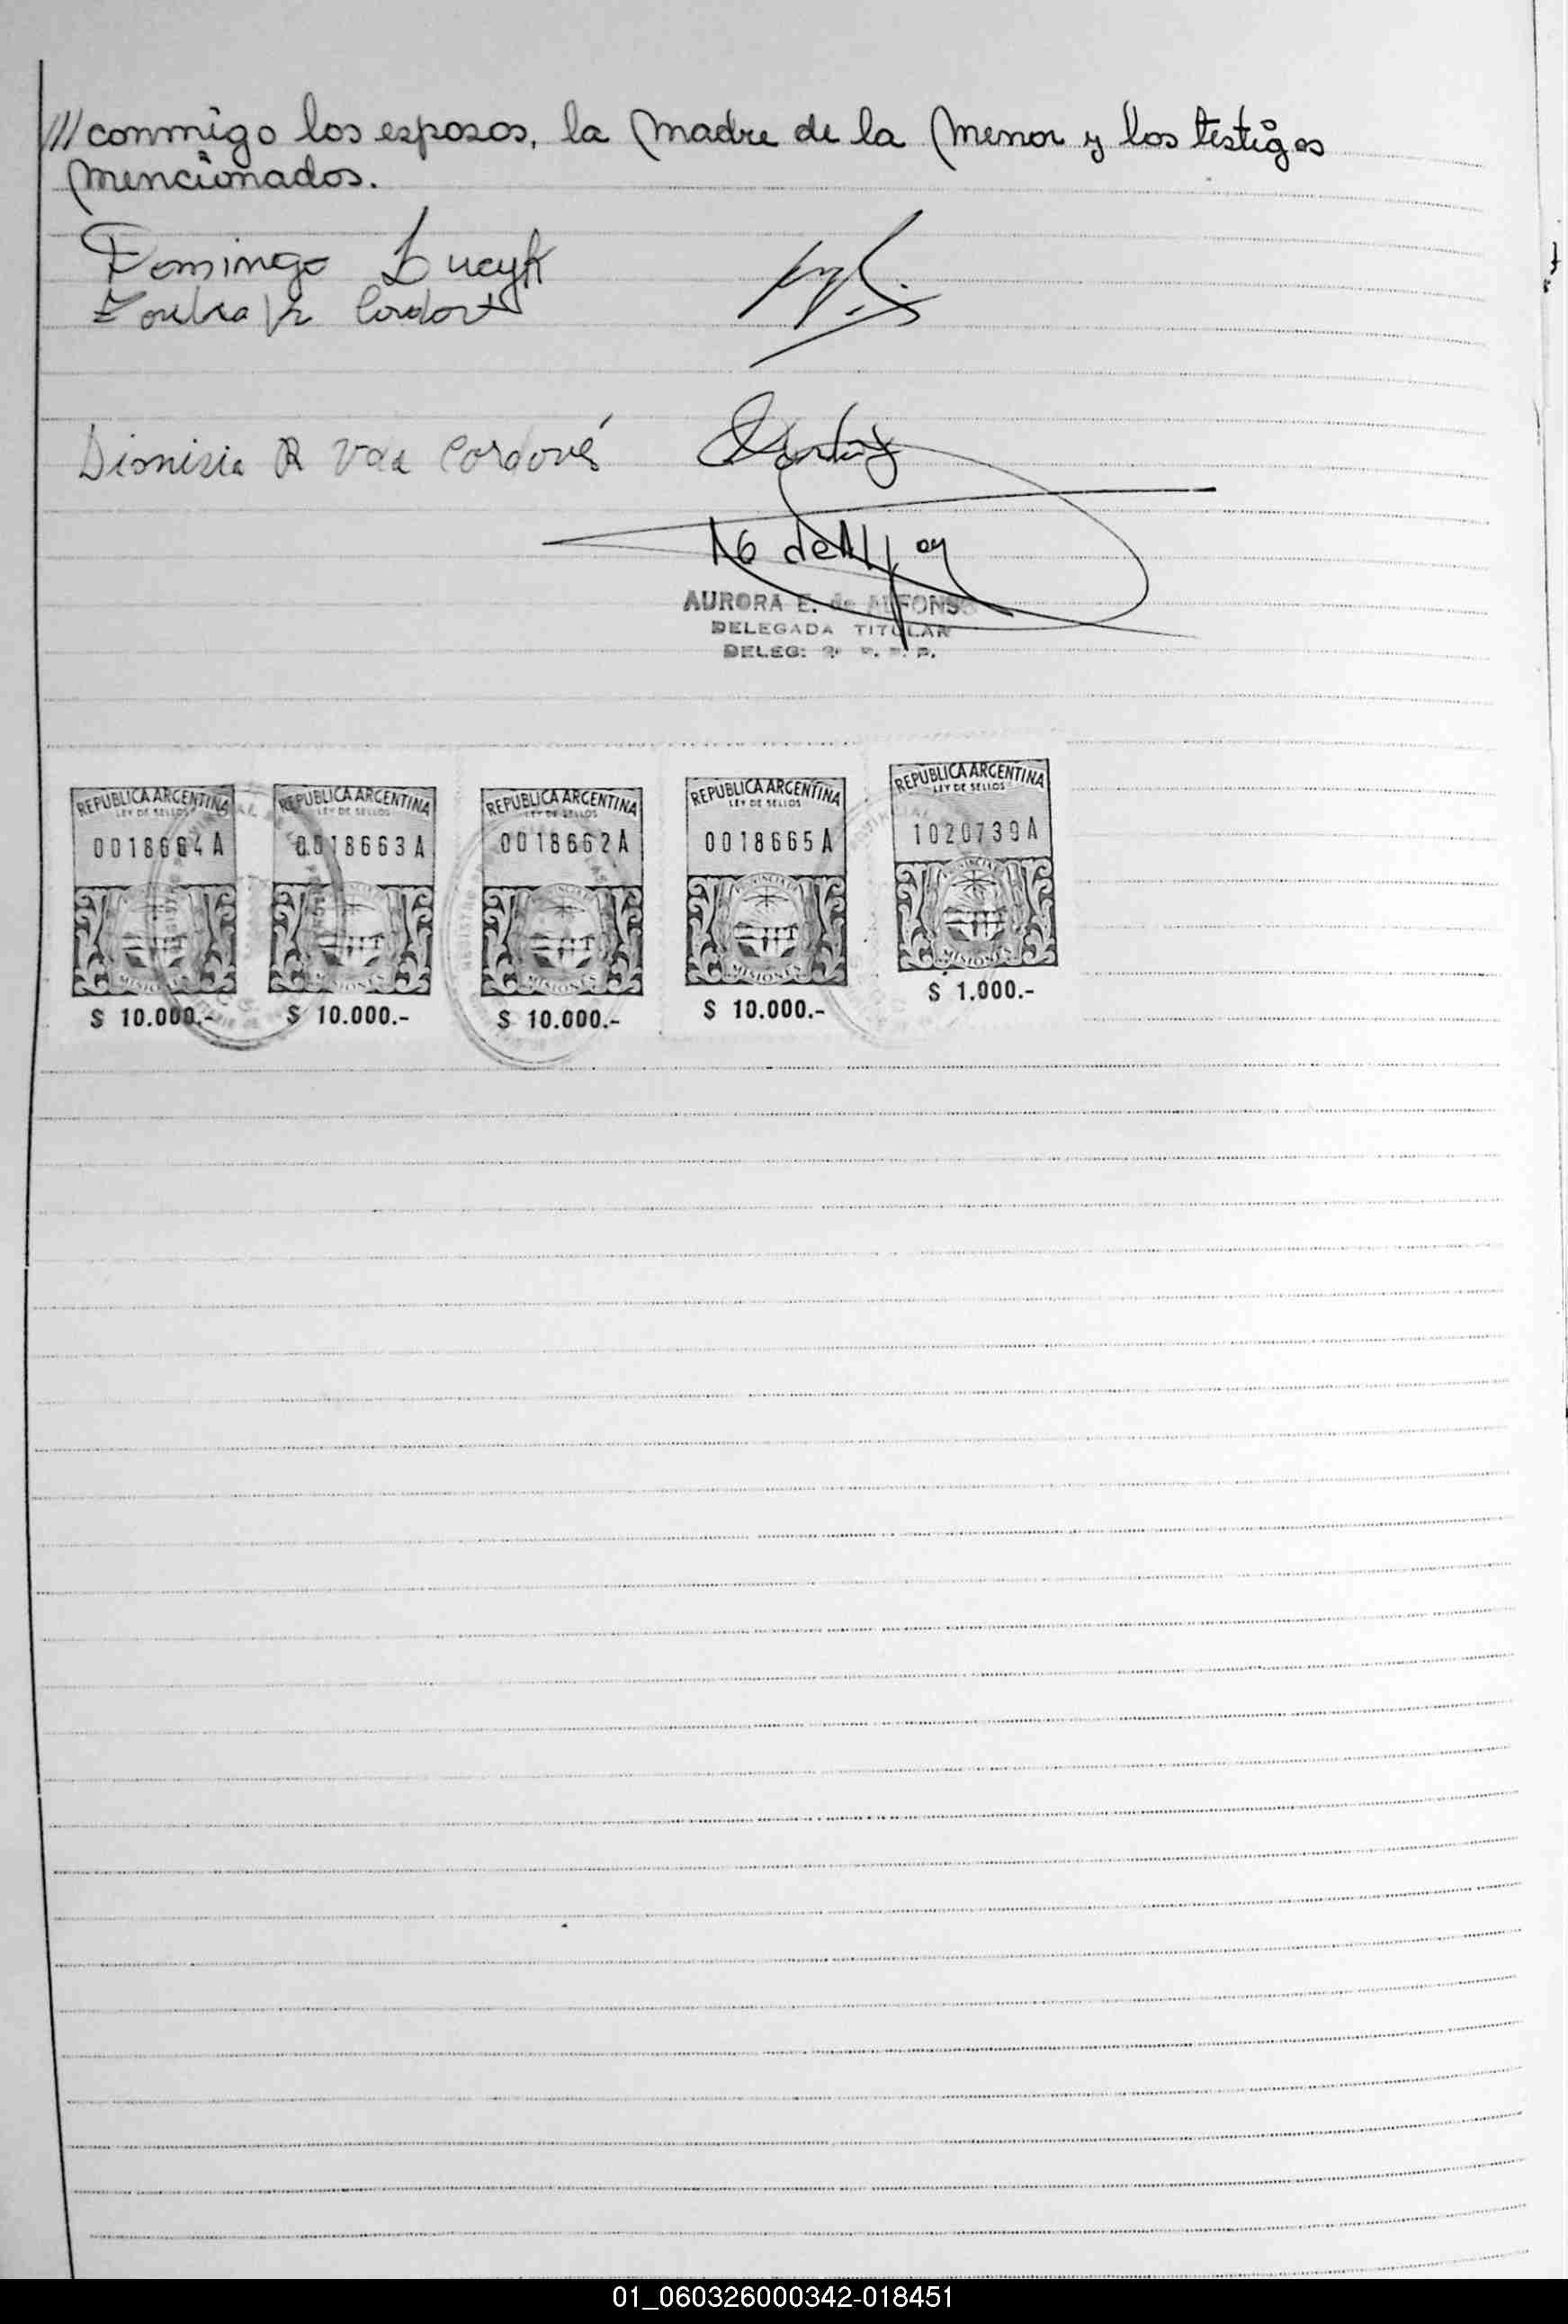 ///conmigo los esposos, la madre de la menor y los testigos
mencionados.
Domingo Lucyk
Dionisia R Vda Cordové
AURORA E. de ALFONSO
DELEGADA TITULAR
DELEG:
REPUBLICA ARGENTINA
LEY DE SELLOS
0018664A
MISIONES
$ 10.000.-
REPUBLICA ARGENTINA
LEY DE SELLOS
0018663A
MISIONES
$ 10.000.-
REPUBLICA ARGENTINA
LEY DE SELLOS
0018662A
MISIONES
$ 10.000.-
REPUBLICA ARGENTINA
LEY DE SELLOS
0018665A
MISIONES
$ 10.000.-
REPUBLICA ARGENTINA
LEY DE SELLOS
1020739A
MISIONES
$ 1.000.-
01_060326000342-018451